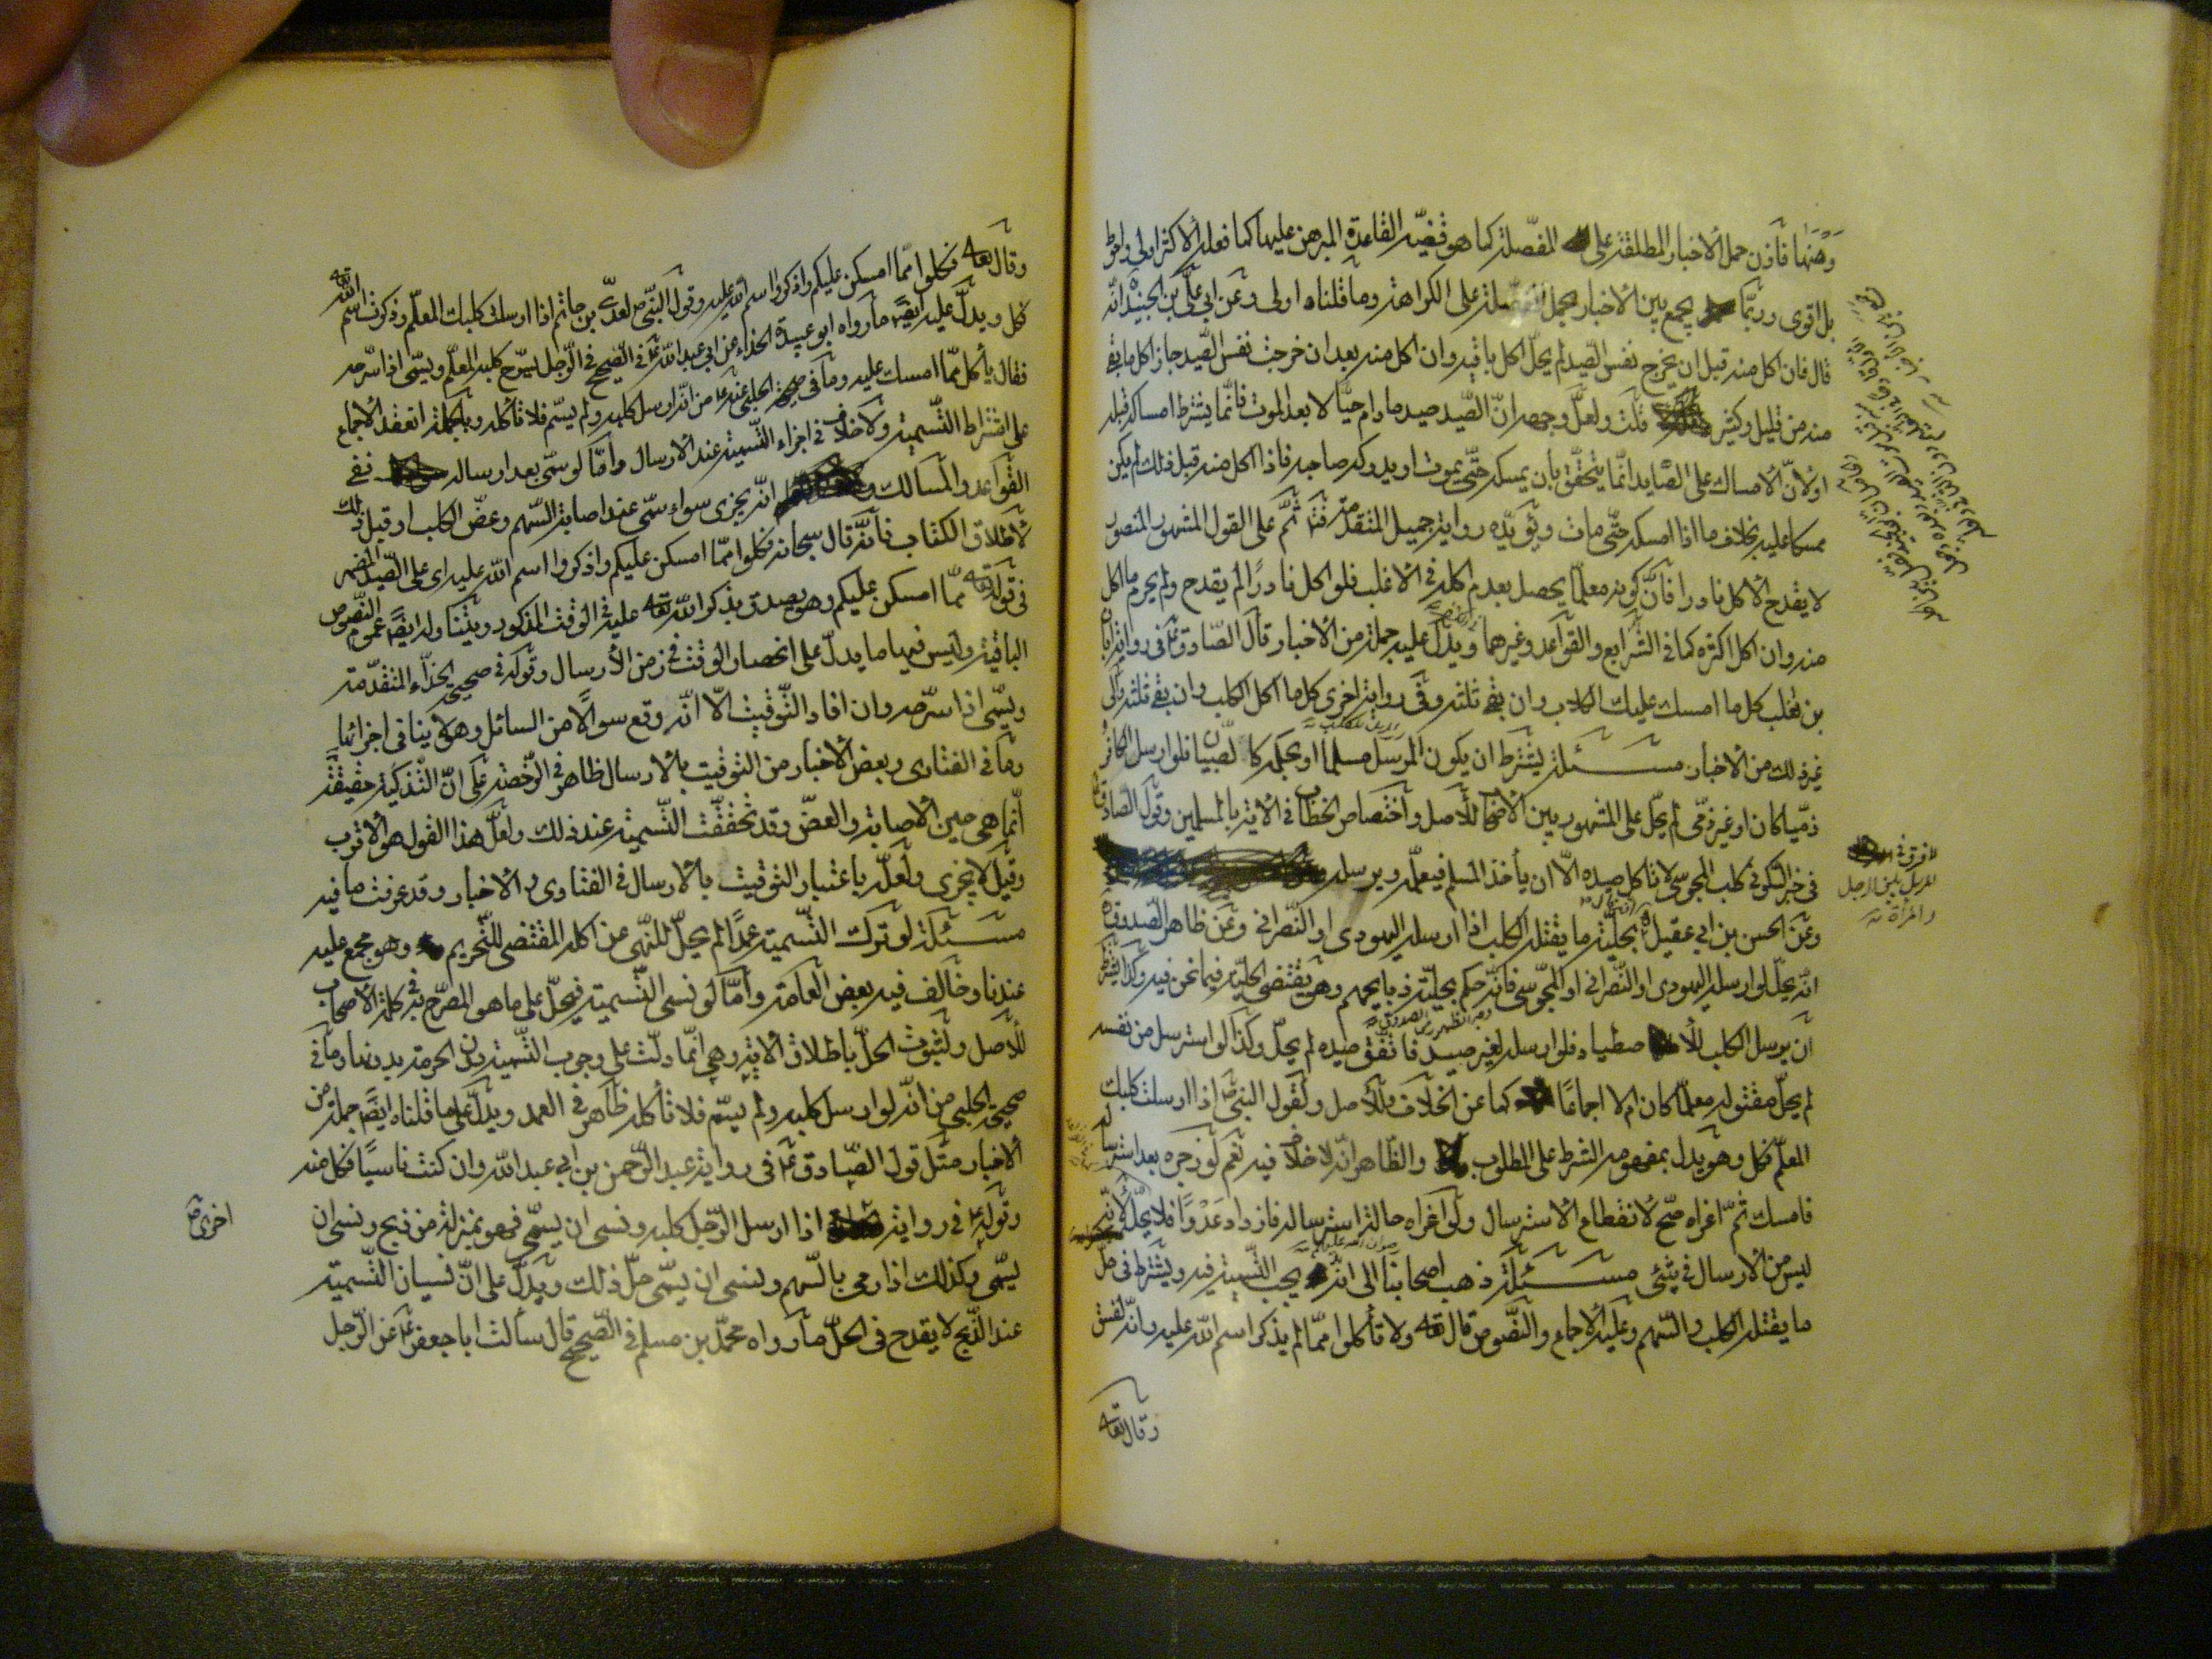 وههنا فاذن حمل الأخبار المطلقة على المفصلة كما هو قضية القاعدة المبرهن عليها كما فعله الأكثر اولى واحوط
بل اقوى وربما يجمع بين الأخبار بحمل المفصلة على الكراهة وما قلناه اولى وعن ابي علي بن الجنيد انه
قال فان اكل منه قبل ان يخرج نفس الصيد لم يحل اكل باقيه وان اكل منه بعد ان خرجت نفس الصيد جاز اكل ما بقي
منه من قليل وكثير قلت ولعل وجهه ان الصيد صيد ما دام حيا لا بعد الموت فانما يشترط امساكه قبله
اولأن الأمساك على الصايد انما يتحقق بأن يمسكه حتى يموت او يدركه صاحبه فاذا اكل منه قبل ذلك لم يكن
ممسكا عليه بخلاف ما اذا امسكه حتى مات ويؤيده رواية جميل المتقدمة ثم على القول المشهور المنصور
لا يقدح الاكل نادرا فان كونه معلما يحصل بعدم اكله في الاغلب فلو اكل نادرا لم يقدح ولم يحرم ما اكل
منه وان اكل اكثره كما في الشرايع والقواعد وغيرهما ويدل عليه جملة من الأخبار قال الصادق ع في رواية ابان
بن تغلب كل ما امسك عليك الكلاب وان بقي ثلثه وفي رواية اخرى كل ما اكل الكلب وان بقي ثلثه والى
غير ذلك من الأخبار مسئلة يشترط ان يكون المرسل مسلما او بحكمه كالصبي فلو ارسل الكافر
ذميا كان او غير ذمي لم يحل على المشهور بين الاصحاب للأصل واختصاص الخطاب في الأية بالمسلمين وقول الصادق ع
في خبر السكوني كلب المجوسي لا تأكل صيده الا ان يأخذ المسلم فيعلمه ويرسله
وعن الحسن بن ابي عقيل بحلية ما يقتله الكلب اذا ارسله اليهودي او النصراني وعن ظاهر الصدوق ره
انه يحل لو ارسله اليهودي او النصراني او المجوسي فانه حكم بحلية ذبايحهم وهو يقتضي الحلية فيما نحن فيه وكذا يشترط
ان يرسل الكلب للأصطياد فلو ارسله لغير صيد فاتفق صيده لم يحل وكذا لو استرسل من نفسه
لم يحل مقتوله معلما كان ام لا اجماعا كما عن الخلاف وللأصل ولقول النبي ص اذا ارسلت كلبك
المعلم فكل وهو يدل بمفهومه الشرط على المطلوب والظاهر انه لا خلاف فيه نعم لو زجره بعد استرساله
فامسك ثم اغراه صح لانقطاع الاسترسال ولو اغراه حالة استرساله فازداد عدوا فلا يحل لأنه
ليس من الأرسال في شئ مسئلة ذهب اصحابنا الى انه يجب التسمية فيه ويشترط في حل
ما يقتله الكلب والسهم وعليه الأجماع والنصوص قال تعالى ولا تأكلوا مما لم يذكر اسم الله عليه وانه لفسق
وقال تعالى
للا فرق في
المرسل بين الرجل
والمرأة
وقال تعالى فكلوا مما امسكن عليكم واذكروا اسم الله عليه وقول النبي ص لعدي بن حاتم اذا ارسلت كلبك المعلم وذكرت اسم الله تعالى
فكل ويدل عليه ايضا ما رواه ابو عبيدة الحذاء عن ابي عبد الله ع في الصحيح في الرجل يسرح كلبه المعلم ويسمي اذا سرحه
فقال يأكل مما امسك عليه وما في صحيحة الحلبي عنه ع من انه ارسل كلبه ولم يسم فلا تأكله وبالجملة انعقد الأجماع
على اشتراط التسمية ولا خلاف في اجزاء التسمية عند الأرسال وأما لو سمى بعد ارساله ففي
القواعد والمسالك انه يجزي سواء سمى عند اصابة السهم وعض الكلب او قبل ذلك
لاطلاق الكتاب فانه قال سبحانه فكلوا مما امسكن عليكم واذكروا اسم الله عليه اي على الصيد المضمر
في قوله تعالى مما امسكن عليكم وهو يصدق بذكر الله تعالى عليه في الوقت المذكور ويتناوله ايضا عموم النصوص
الباقية وليس فيها ما يدل على انحصار الوقت في زمن الأرسال وقوله في صحيح الحذاء المتقدمة
ويسمي اذا سرحه وان افاد التوقيت الا انه وقع سوالا من السائل وهو لا ينافي اجزائها
وما في الفتاوى وبعض الأخبار من التوقيت بالأرسال ظاهر في الرخصة على ان التذكية حقيقة
انما هي حين الأصابة والعض وقد تحققت التسمية عند ذلك ولعل هذا القول هو الأقرب
وقيل لا يجزي ولعله باعتبار التوقيت بالأرسال في الفتاوى والأخبار وقد عرفت ما فيه
مسئلة لو ترك التسمية عمدا لم يحل للنهي عن اكله المقتضي للتحريم وهو مجمع عليه
عندنا وخالف فيه بعض العامة وأما لو نسي التسمية فيحل على ما هو المصرح به في كلمة الأصحاب
للأصل ولثبوت الحل بأطلاق الأية وهي انما دلت على وجوب التسمية دون الحرمة بدونها وما في
صحيحة الحلبي من انه لو ارسل كلبه ولم يسم فلا تأكله ظاهر في العمد ويدل على ما قلناه ايضا جملة من
الأخبار مثل قول الصادق ع في رواية عبد الرحمن بن ابي عبد الله وان كنت ناسيا فكل منه
وقوله ع في رواية اذا ارسل الرجل كلبه ونسي ان يسمي فهو بمنزلة من ذبح ونسي ان
يسمي وكذلك اذا رمى بالسهم ونسي ان يسمي حل ذلك ويدل على ان نسيان التسمية
عند الذبح لا يقدح في الحل ما رواه محمد بن مسلم في الصحيح قال سألت ابا جعفر ع عن الرجل
اخرى